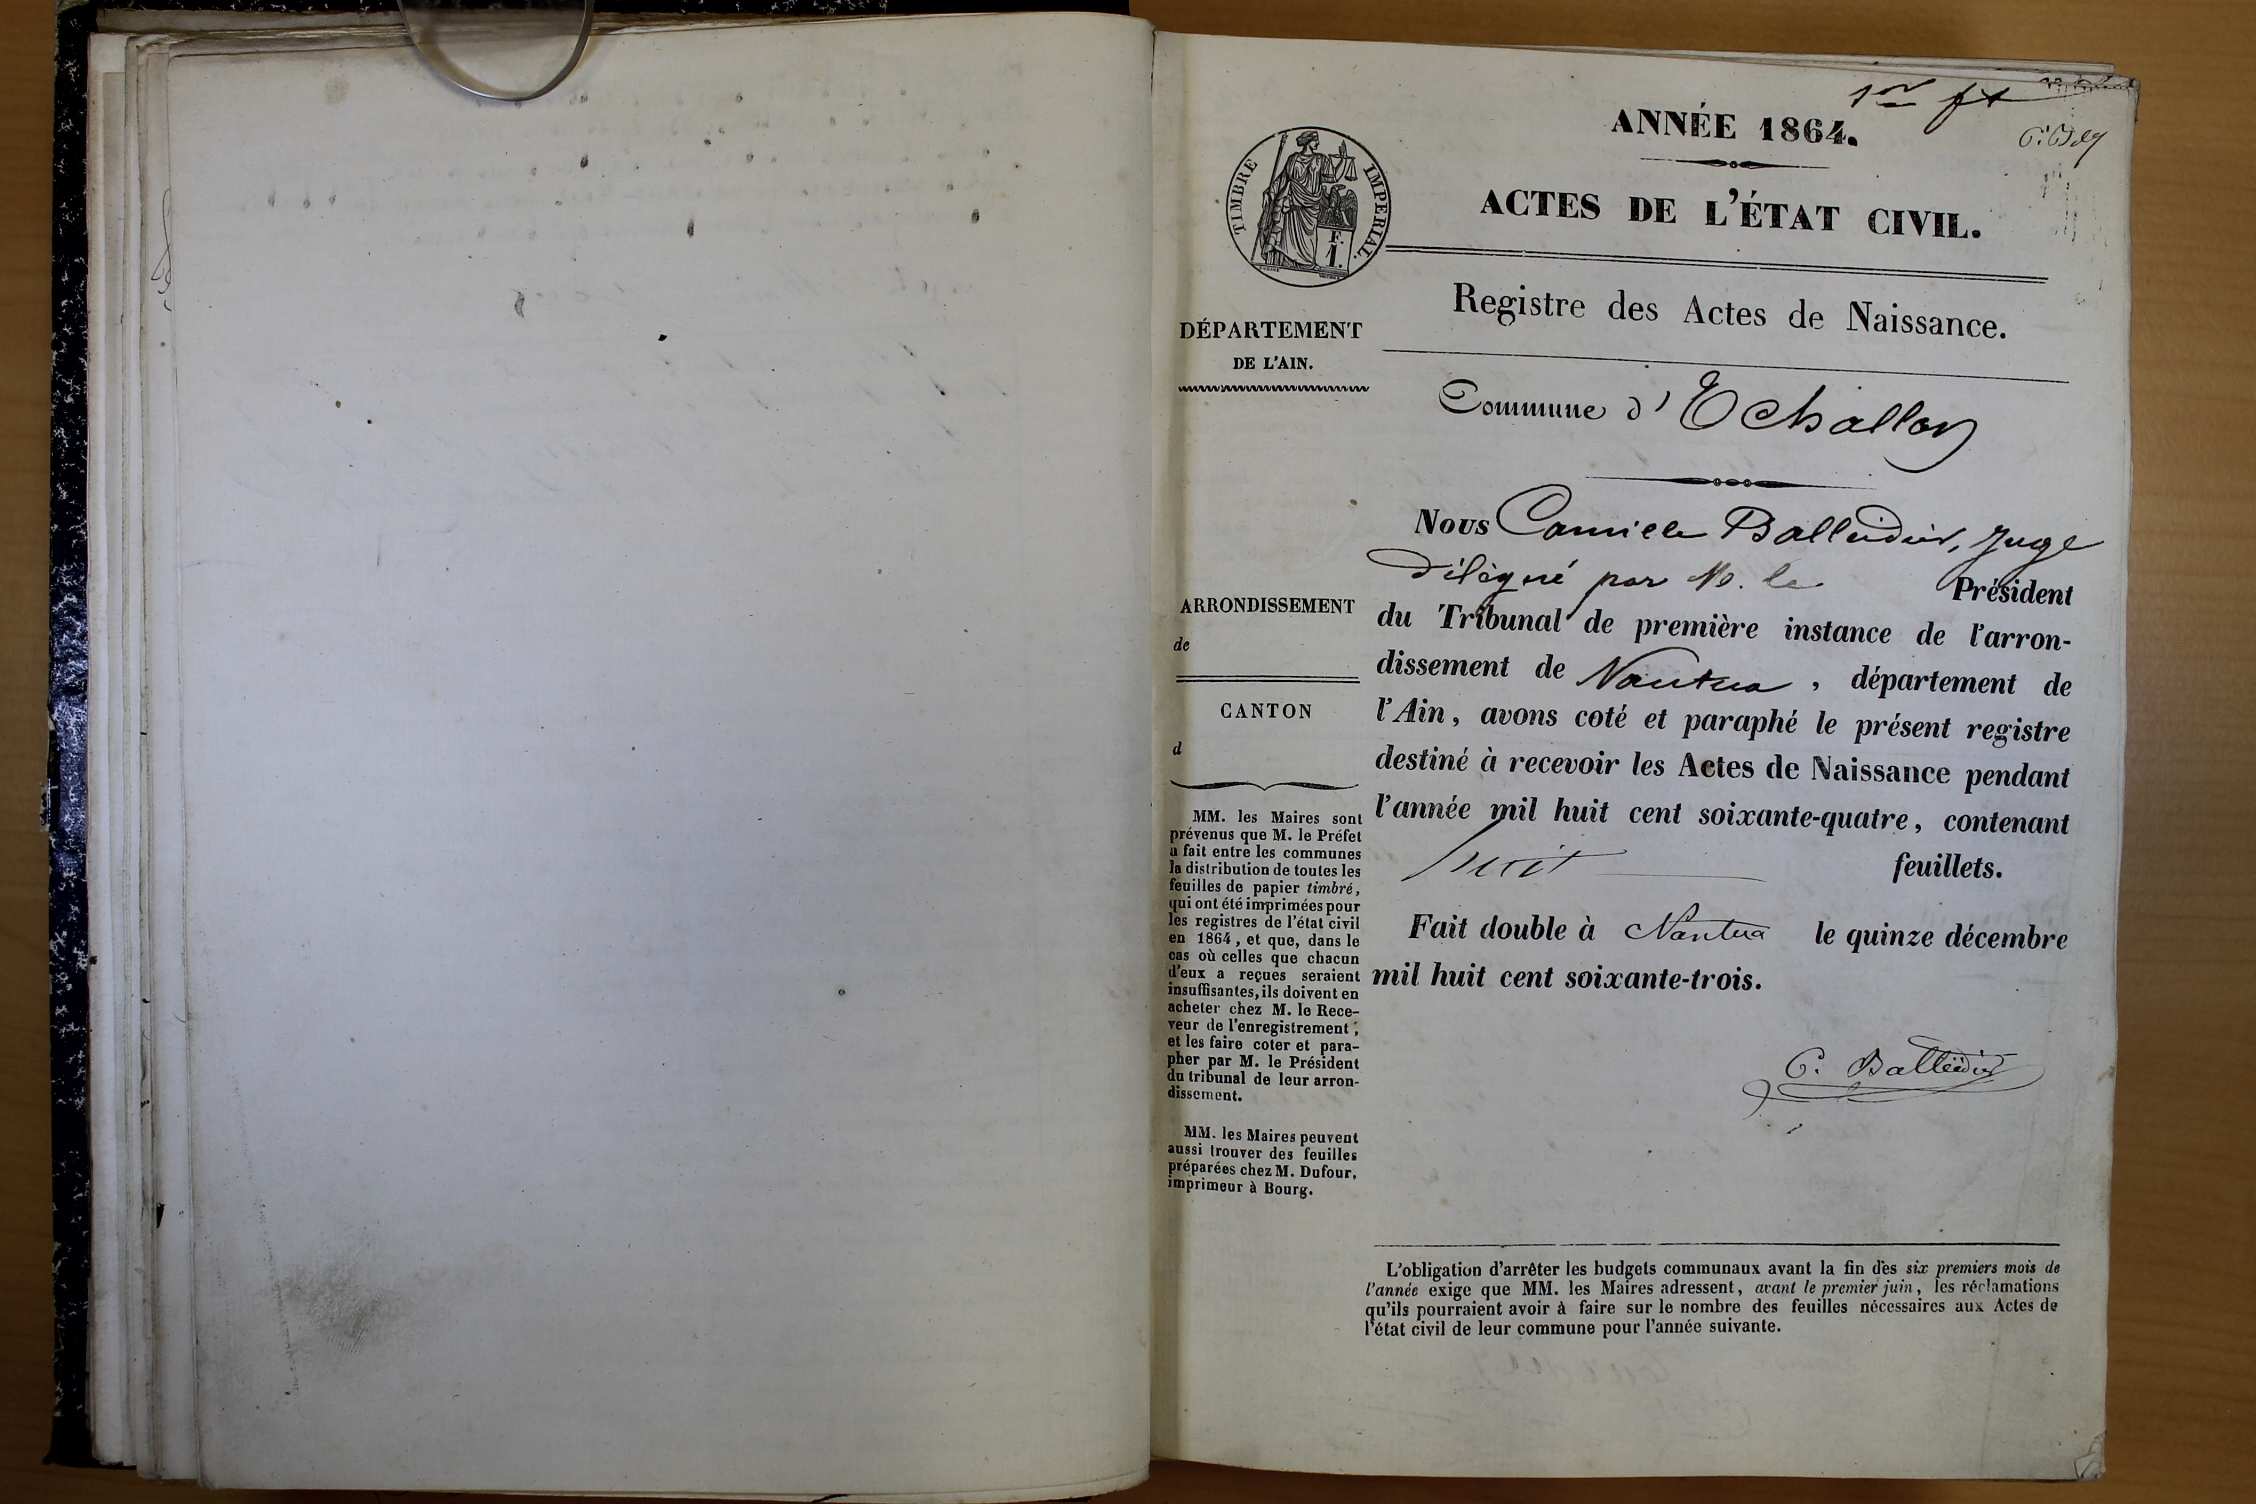 1er ft
ANNÉE 1864.
ACTES DE L'ÉTAT CIVIL.
TIMBRE IMPERIAL.
F.
1.
Registre des Actes de Naissance.
DÉPARTEMENT
DE L'AIN.
Commune d'Echallon
Nous Camille Balleidier, Juge
délégué par M. le Président
du Tribunal de première instance de l'arron-
dissement de Nantua, département de
l'Ain, avons coté et paraphé le présent registre
destiné à recevoir les Actes de Naissance pendant
l'année mil huit cent soixante-quatre, contenant
huit feuillets.
Fait double à Nantua le quinze décembre
mil huit cent soixante-trois.
C. Balleidier
ARRONDISSEMENT
de
CANTON
d
MM. les Maires sont
prévenus que M. le Préfet
a fait entre les communes
la distribution de toutes les
feuilles de papier timbré,
qui ont été imprimées pour
les registres de l'état civil
en 1864, et que, dans le
cas où celles que chacun
d'eux a reçues seraient
insuffisantes, ils doivent en
acheter chez M. le Rece-
veur de l'enregistrement,
et les faire coter et para-
pher par M. le Président
du tribunal de leur arron-
dissement.
MM. les Maires peuvent
aussi trouver des feuilles
préparées chez M. Dufour,
imprimeur à Bourg.
L'obligation d'arrêter les budgets communaux avant la fin des six premiers mois de
l'année exige que MM. les Maires adressent, avant le premier juin, les réclamations
qu'ils pourraient avoir à faire sur le nombre des feuilles nécessaires aux Actes de
l'état civil de leur commune pour l'année suivante.